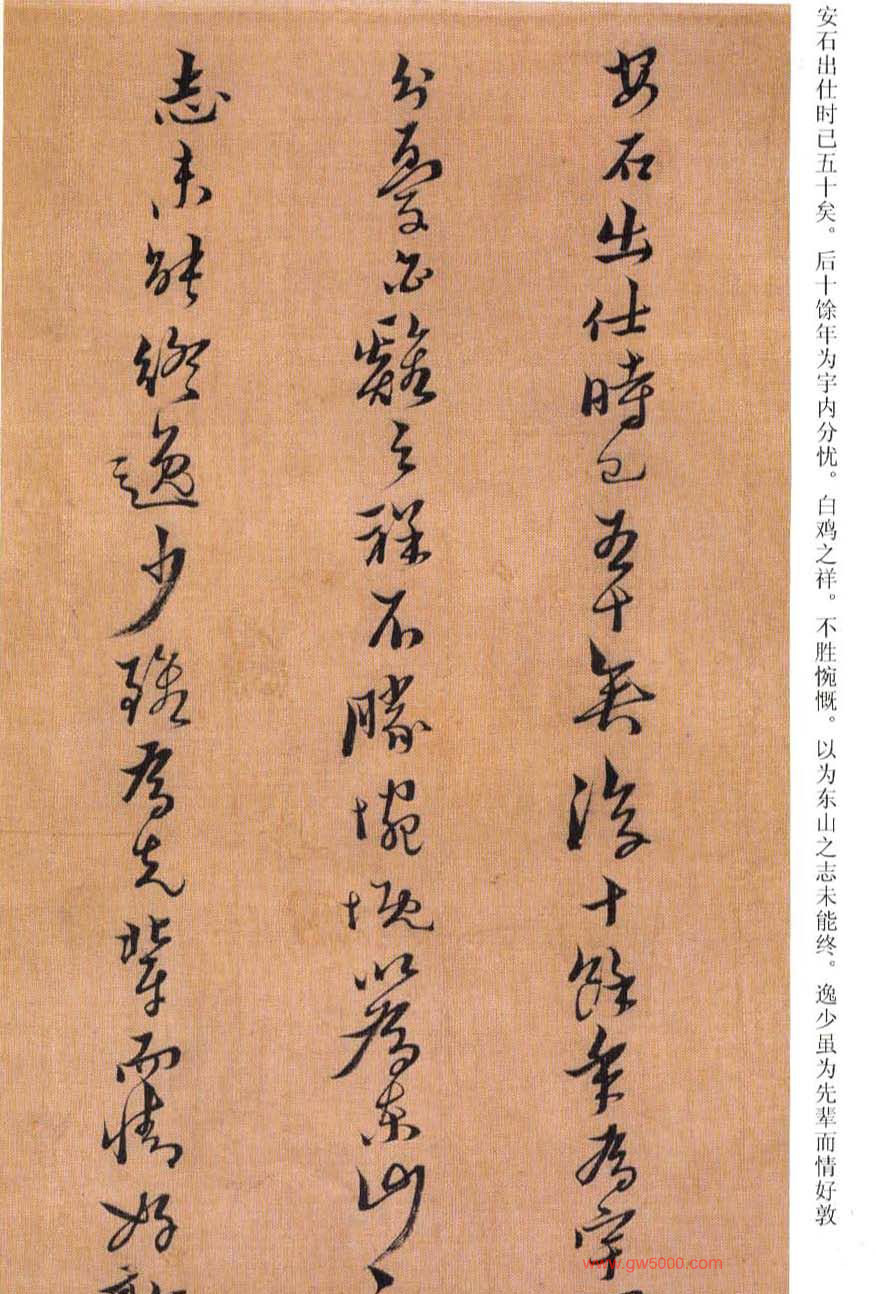 安石出仕时已五十矣。后十馀年为宇内分忧。白鸡之祥。不胜惋慨。以为东山之志未能终。逸少虽为先辈而情好敦
安石出仕時已五十矣後十餘年為宇
分憂白雞之祥不勝惋慨以為東山
志未能終逸少雖為先輩而情好
www.gw5000.com